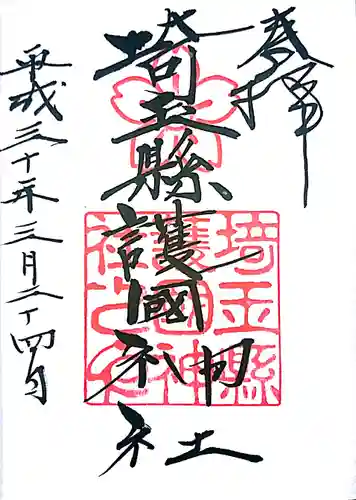 奉拝
埼玉縣護國神社
平成三十年三月二十四日
埼玉縣
護國神
社之印